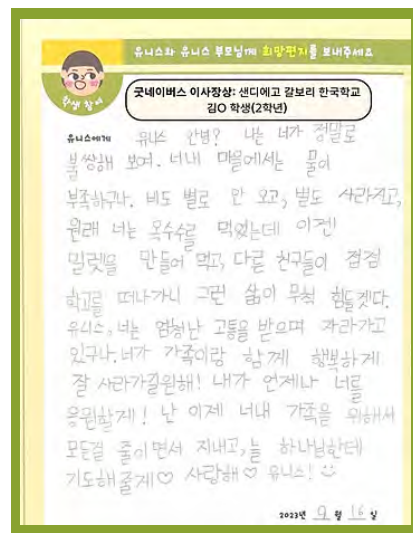 유니스와 유니스 부모님께 희망편지를 보내주세요
학생 참여
굿네이버스 이사장상: 샌디에고 갈보리 한국학교
김O 학생(2학년)
유니스에게 유니스 안녕? 나는 너가 정말로
불쌍해 보여. 너내 마을에서는 물이
부족하구나. 비도 별로 안 오고, 별도 사라지고,
원래 너는 옥수수를 먹었는데 이젠
밀렛을 만들어 먹고, 다른 친구들이 점점
학교를 떠나가니 그런 삶이 무척 힘들겟다.
유니스, 너는 엄청난 고통을 받으며 자라가고
있구나. 너가 가족이랑 함께 행복하게
잘 사라가길원해! 내가 언제나 너를
응원할게! 난 이제 너내 가족을 위해서
모든걸 줄이면서 지내고, 늘 하나님한테
기도해줄게♡ 사랑해♡ 유니스!
2023년 9월 16일